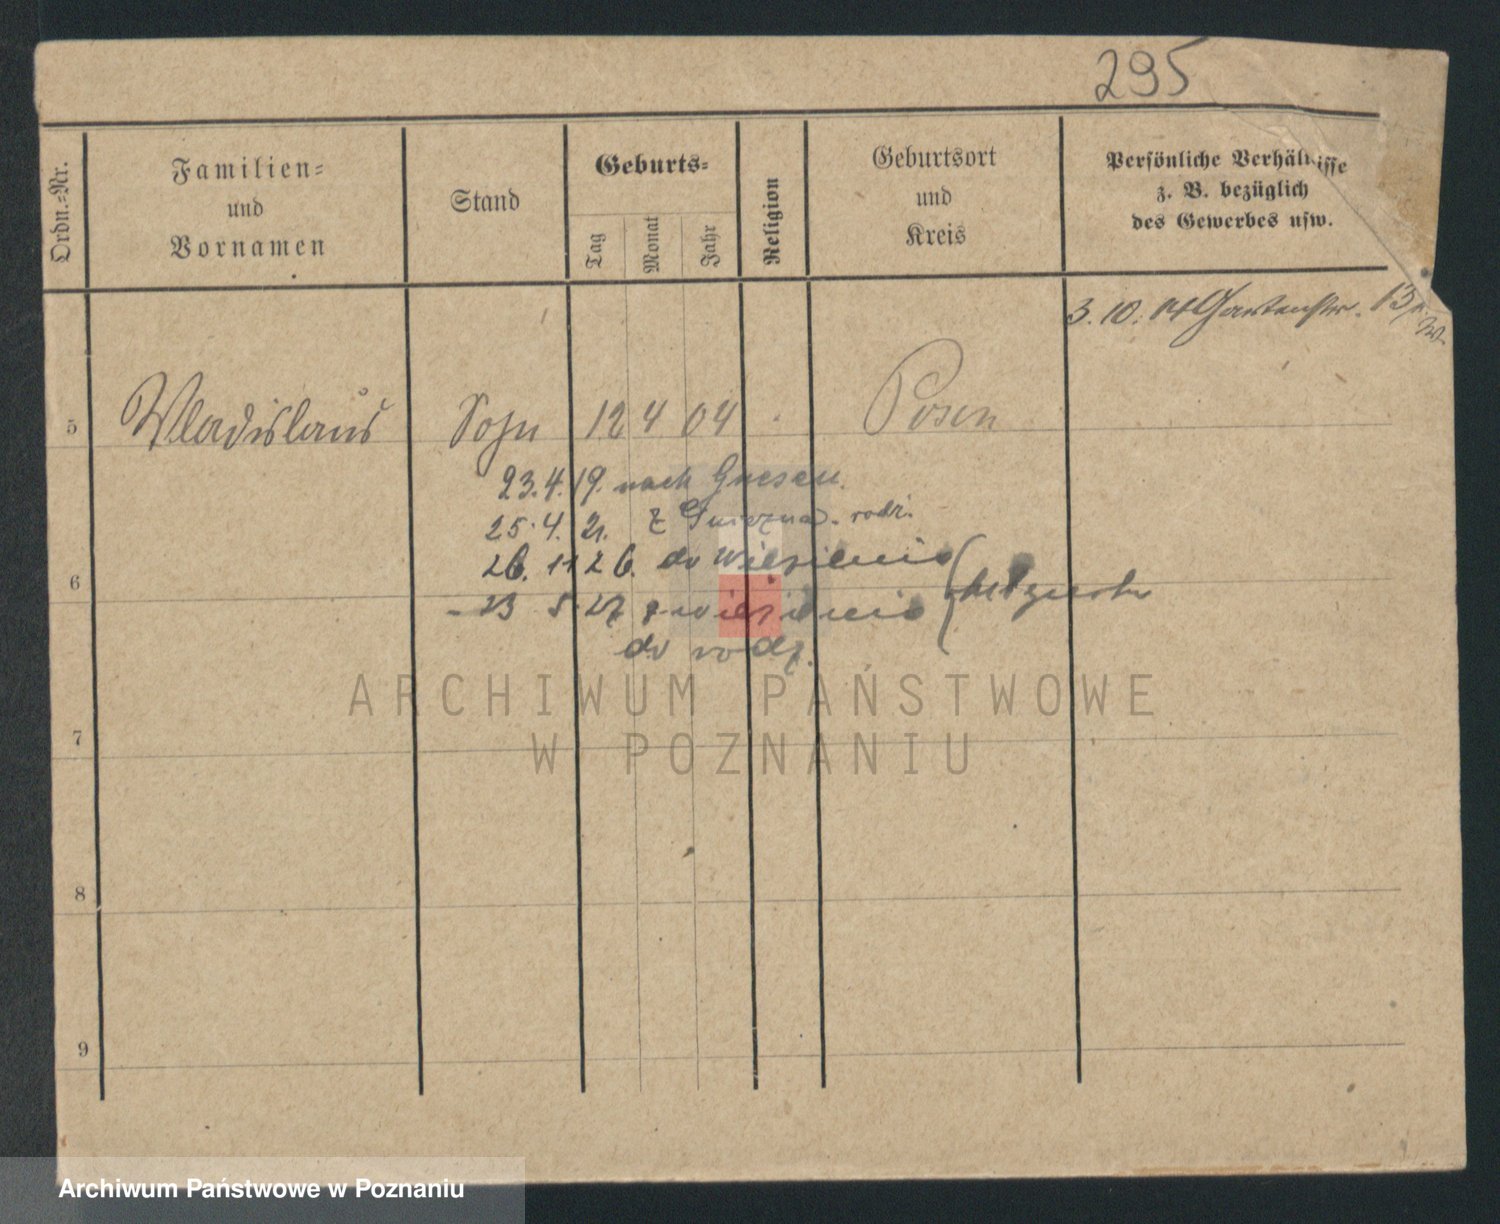 295
Ordn.=Nr.
Familien=
und
Vornamen
Stand
Geburts=
Tag
Monat
Jahr
Religion
Geburtsort
und
Kreis
Persönliche Verhältnisse
z. B. bezüglich
des Gewerbes usw.
3. 10. 14 Gartenstr. 13
5 Wladislaus Sohn 12 4 04 Posen
23. 4. 19. nach Gnesen.
25. 4. 21. z Gniezna. rodz.
6
26. 11 26. do więzienia
23 5. 27 z więzienia
do rodz.
7
8
9
ARCHIWUM PAŃSTWOWE
W POZNANIU
Archiwum Państwowe w Poznaniu